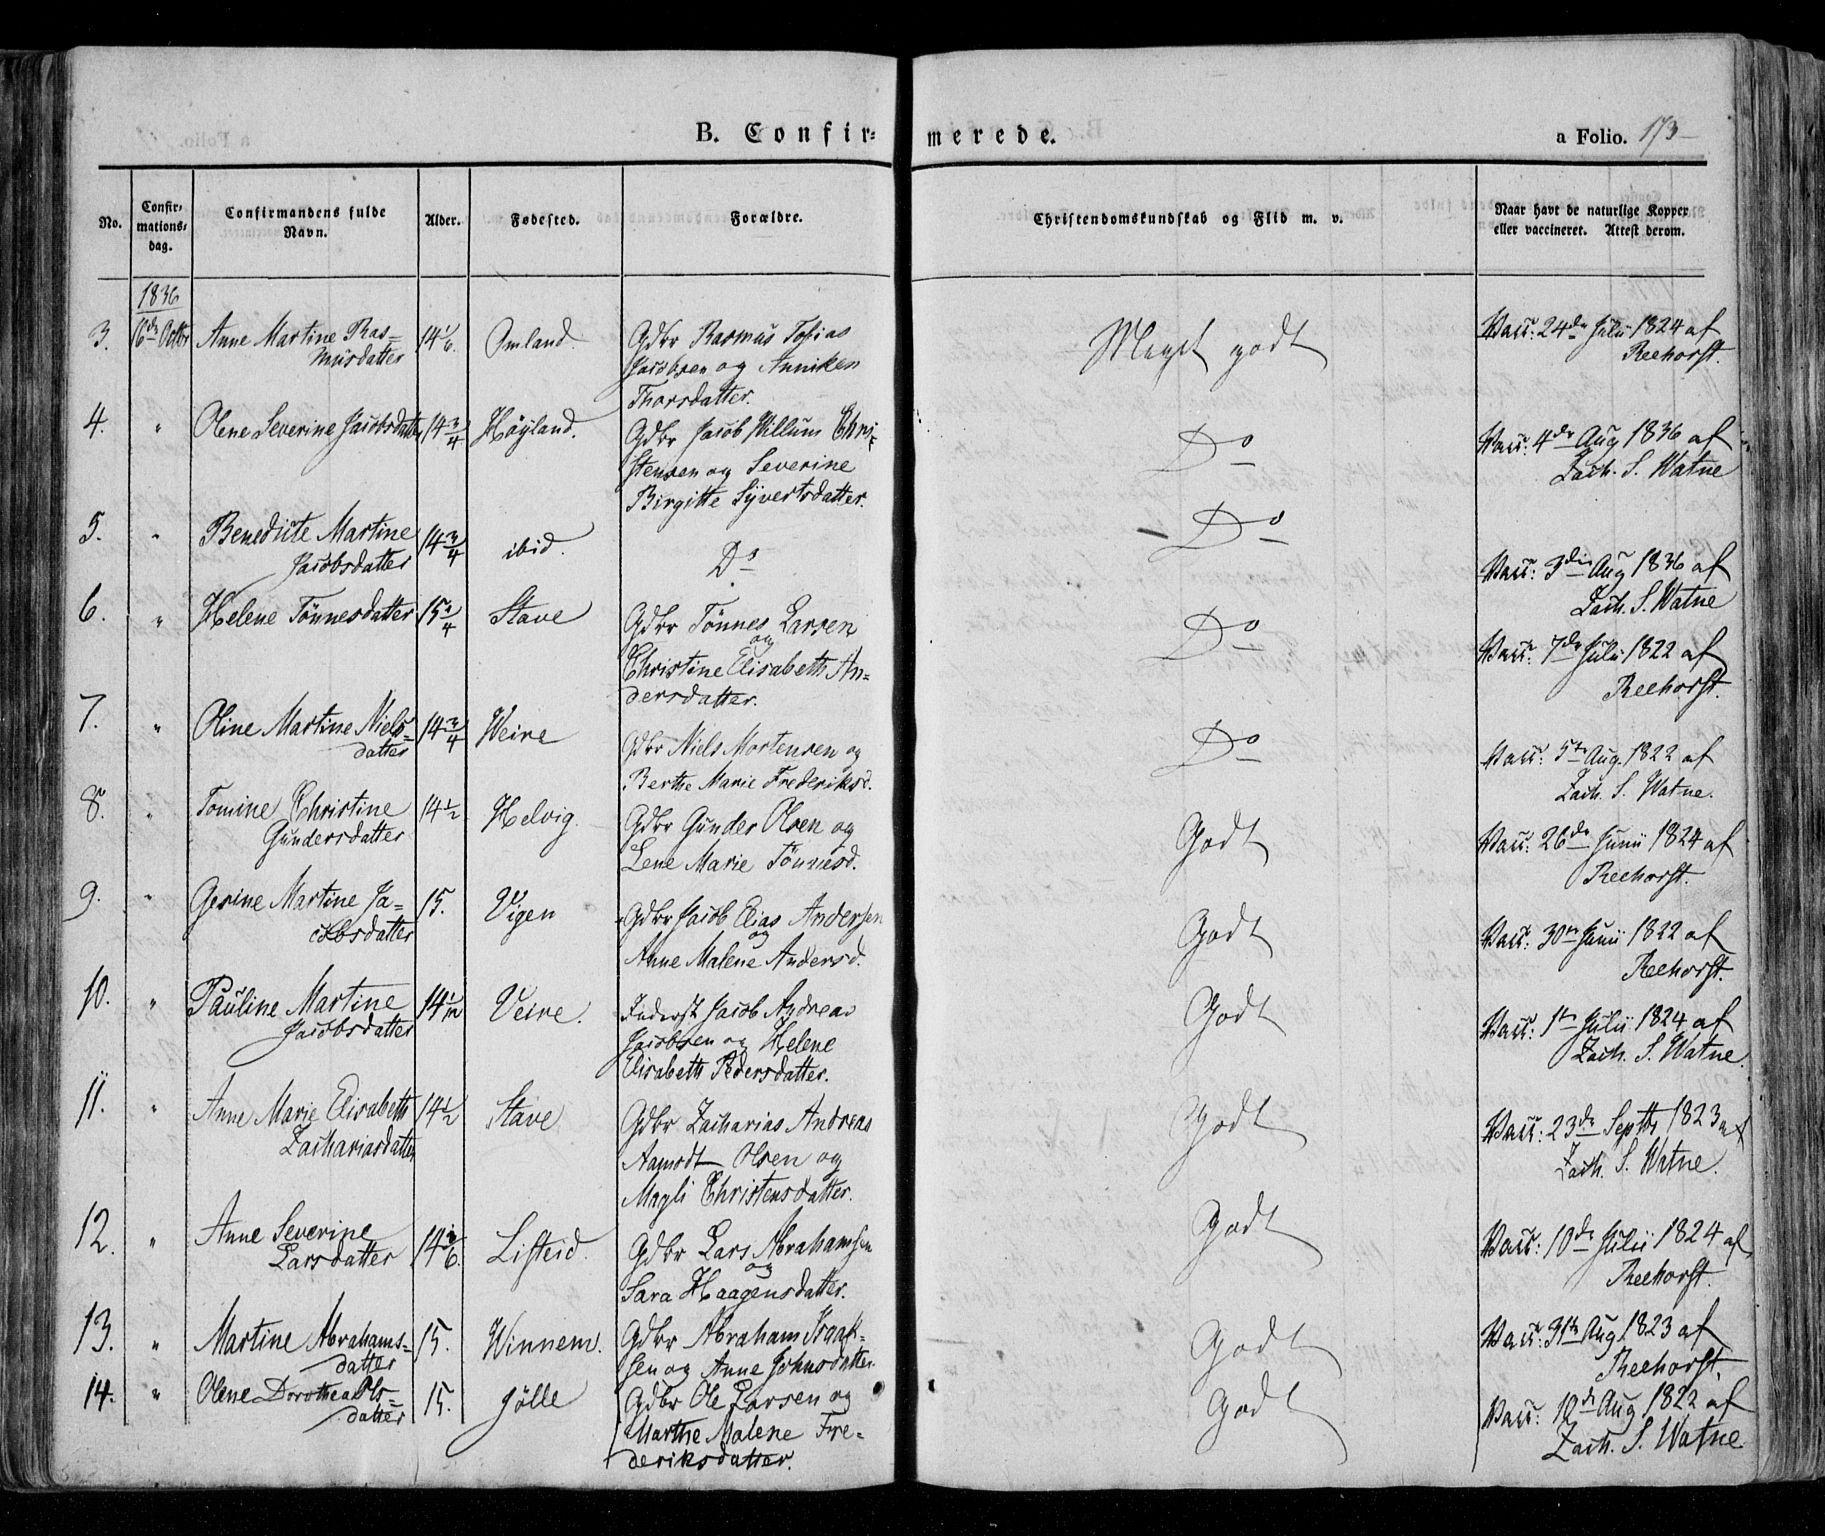 B. Confir=merede.
a Folio. 173
No.
Confir-
mations-
dag.
Confirmandens fulde
Navn.
Alder.
Fødested.
Forældre.
Christendomskundskab og Flid m. v.
Naar havt de naturlige Kopper
eller vaccineret. Attest derom.
1836
3. 16de Octbr Anne Martine Ras= 14 1/6. Omland. Gdbr Rasmus Tobias Meget godt Vacc: 24de Julii 1824 af
musdatter Jacobsen og Anniken Reehorst.
Thorsdatter.
4. " Olene Severine Jacobsdatter 14 3/4 Høyland. Gdbr Jacob Willum Chri= Do Vacc: 4de Aug 1836 af
stensen og Severine Zach. S. Watne
Birgitte Syvertsdatter.
5. " Benedicte Martine 14 3/4 ibid. Do Do Vacc: 3die Aug 1836 af
Jacobsdatter Zach. S. Watne
6. " Helene Tönnesdatter 15 3/4 Stave Gdbr Tönnes Larsen Do Vacc: 7de Julii 1822 af
og
Christine Elisabeth An= Reehorst.
dersdatter.
7. " Oline Martine Niels= 14 3/4 Weire Gdbr Niels Mortensen og Do Vacc: 5te Aug. 1822 af
datter Berthe Marie Frederiksd. Zach. S. Watne.
8. " Tomine Christine 14 1/2 Helvig. Gdbr Gunder Olsen og Godt Vacc: 26de Junii 1824 af
Gundersdatter Lene Marie Tönnesd. Reehorst.
9. " Gesine Martine Ja= 15. Vigen Gdbr Jacob Elias Andersen Godt Vacc: 30te Junii 1822 af
cobsdatter og
Anne Malene Andersd. Reehorst.
10. " Pauline Martine 14 1/2 Veire. Inderst Jacob Andreas Godt Vacc: 1te Julii 1824 af
Jacobsdatter Jacobsen og Helene Zach. S. Watne.
Elisabeth Pedersdatter.
11. " Anne Marie Elisabeth 14 1/2 Stave Gdbr Zacharias Andreas Godt Vacc: 23de Septbr 1823 af
Zachariasdatter Aamodt Olsen og Zach. S. Watne.
Magli Christensdatter.
12. " Anne Severine Listeid. Gdbr Lars Abrahamsen Godt Vacc: 10de Julii 1824 af
Larsdatter og
Sara Haagensdatter. Reehorst.
13. " Martine Abrahams= 15. Winnem. Gdbr Abraham Isaak= Godt Vacc: 31te Aug 1823 af
datter sen og Anne Johnsdatter Reehorst.
14. " Olene Dorothea Ols= 15. Jölle Gdbr Ole Larsen og Godt Vacc: Aug 1822 af
datter Marthe Malene Fre= Zach. S. Watne
deriksdatter.